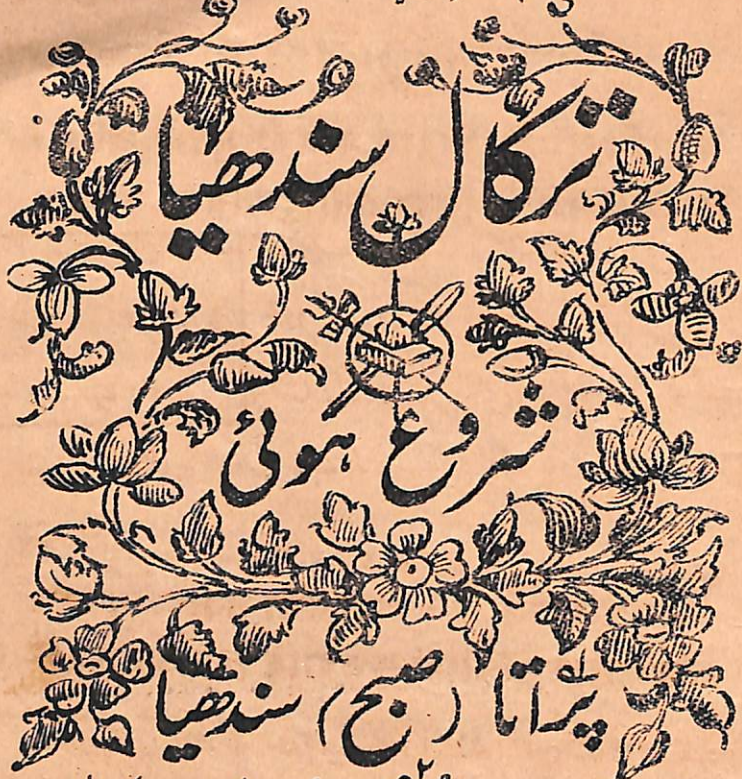 ترکال سندھیا
شروع ہوئی
پراتا (صبح) سندھیا